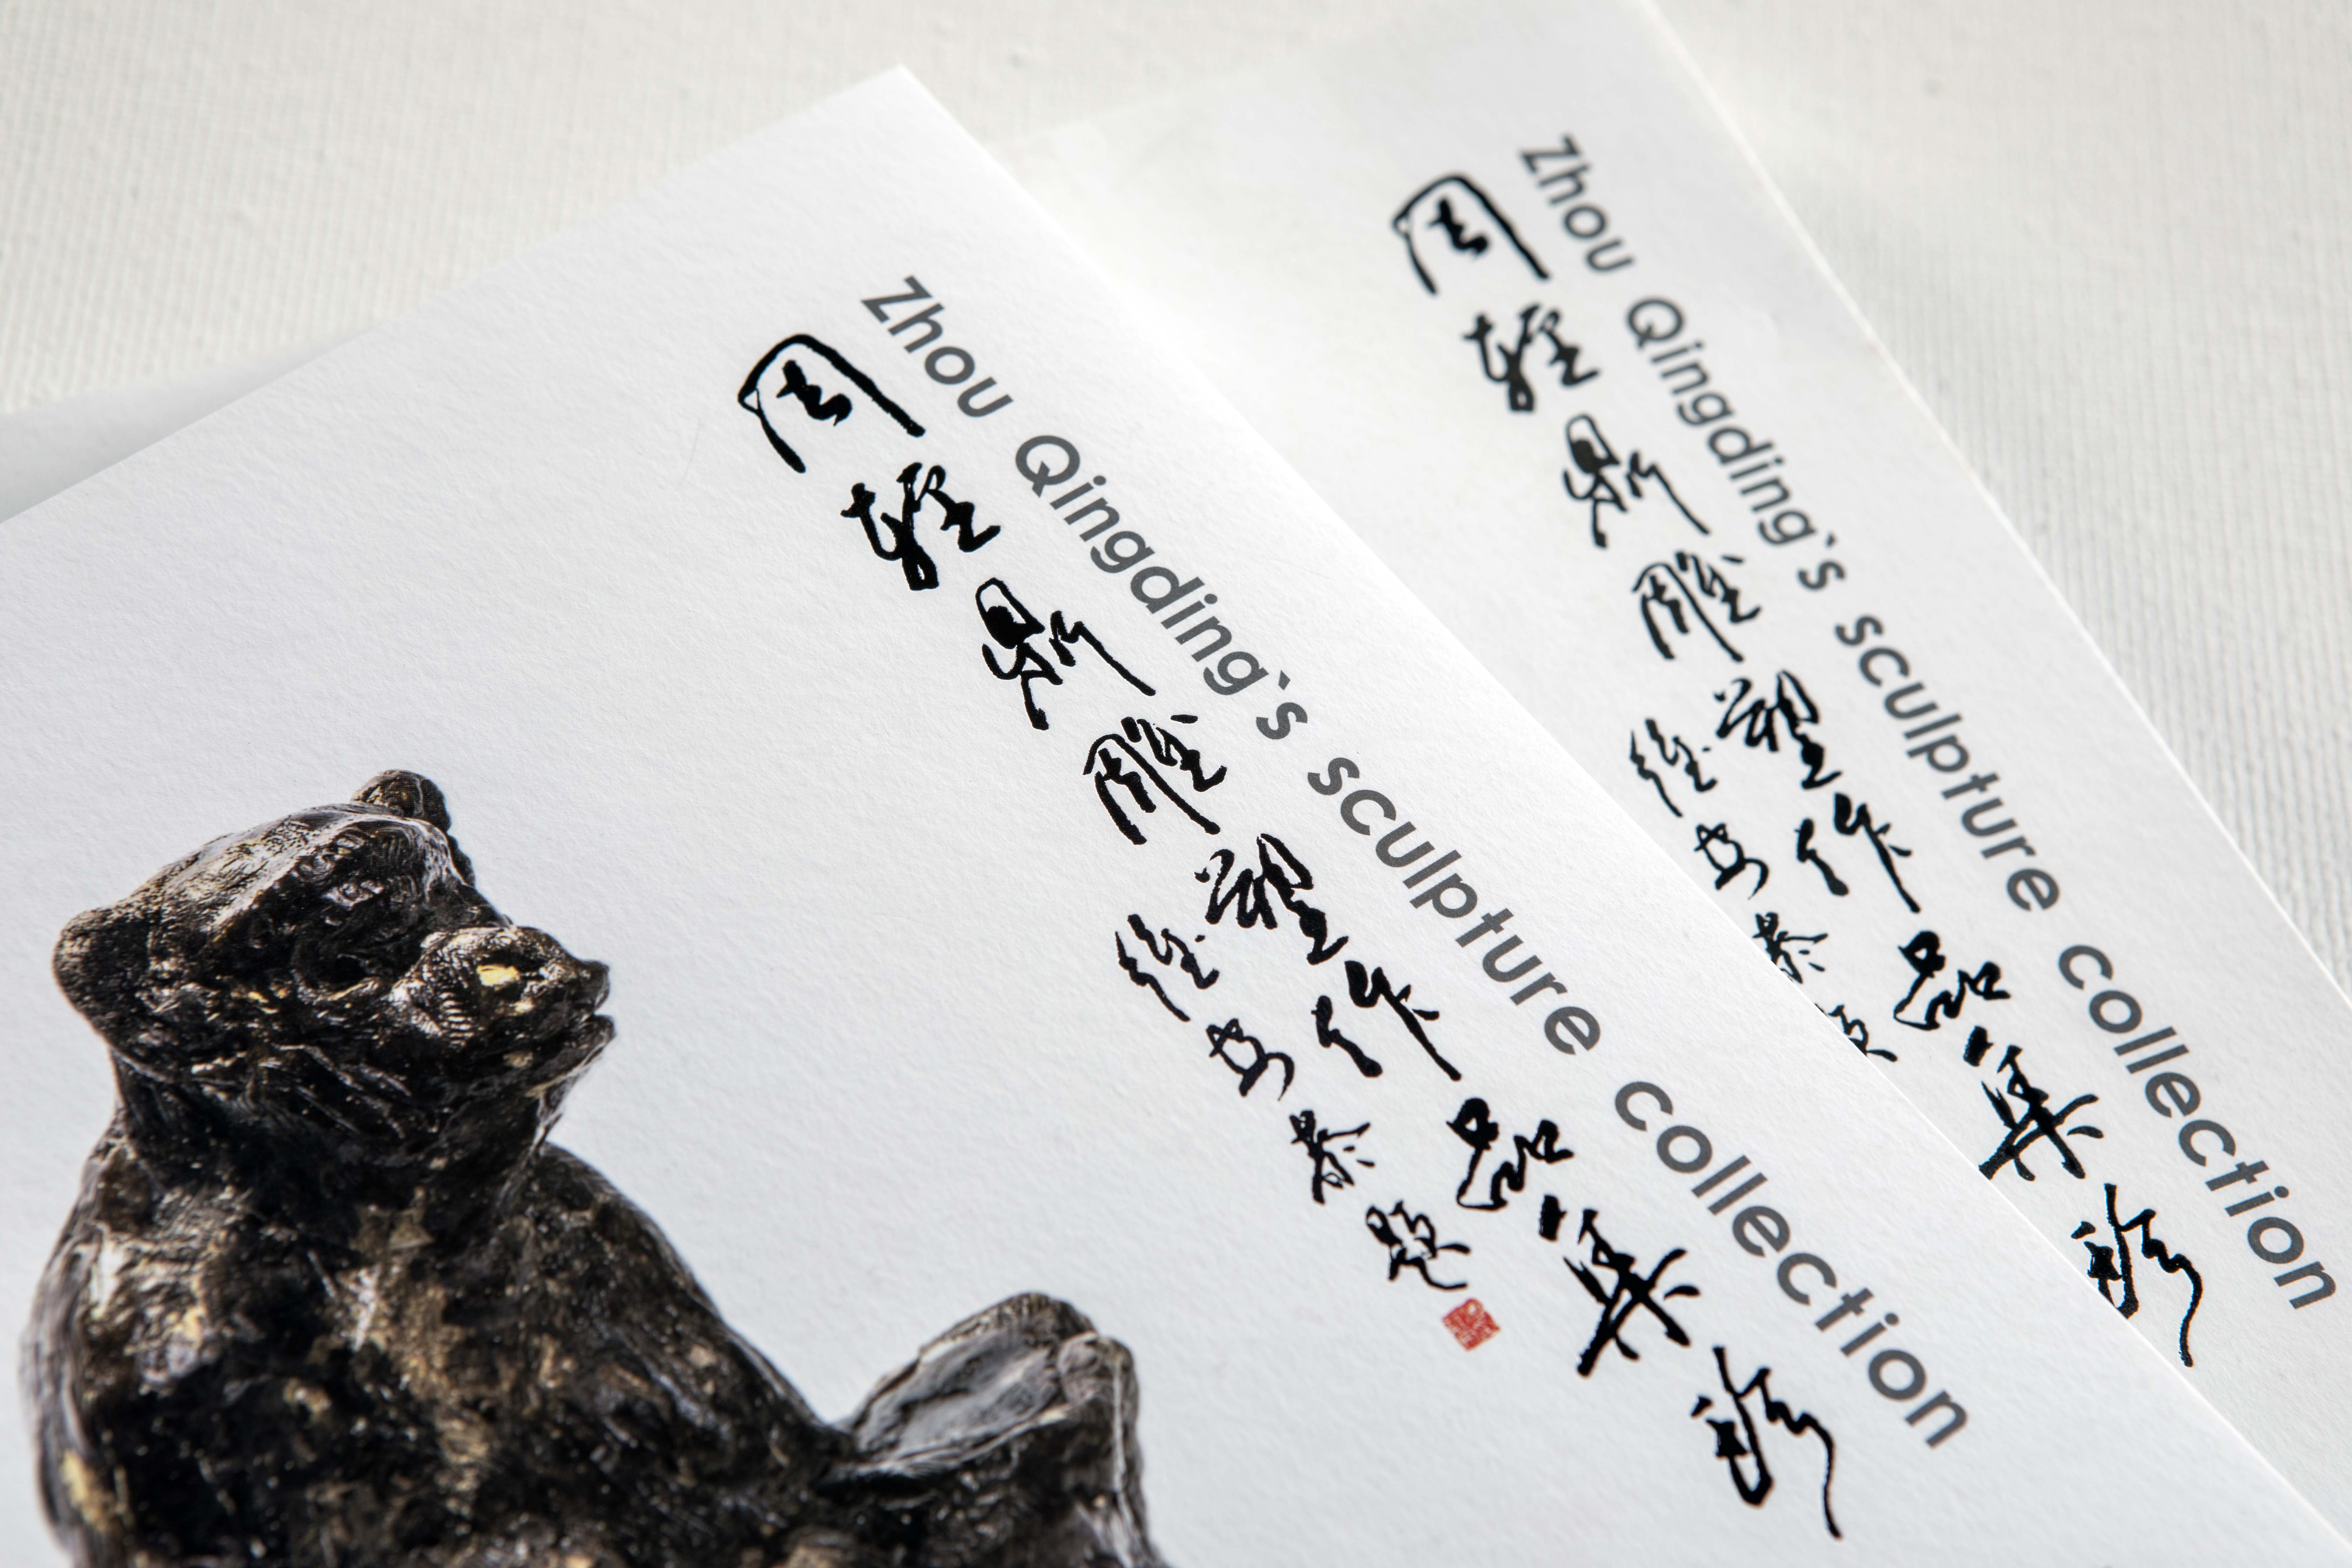 Zhou Qingding`s sculpture collection
周轻鼎雕塑作品集
Zhou Qingding`s sculpture collection
周轻鼎雕塑作品集